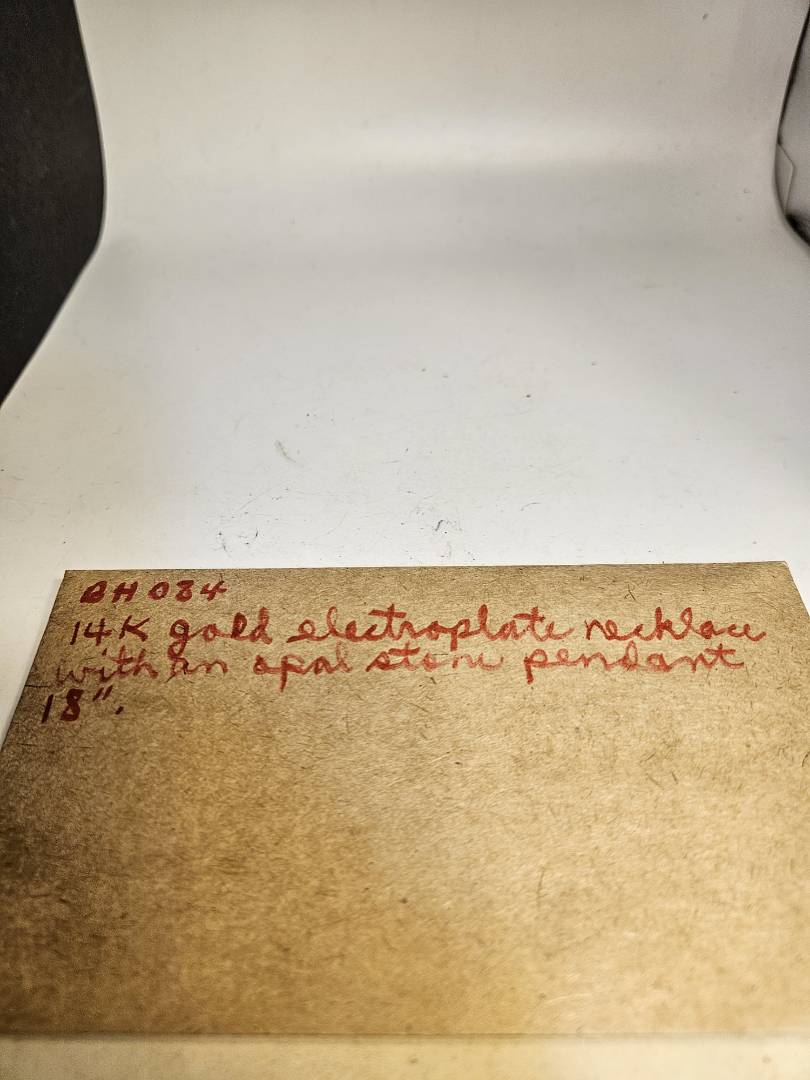 BH 084
14K gold electroplate necklace
with an opal stone pendant
18".